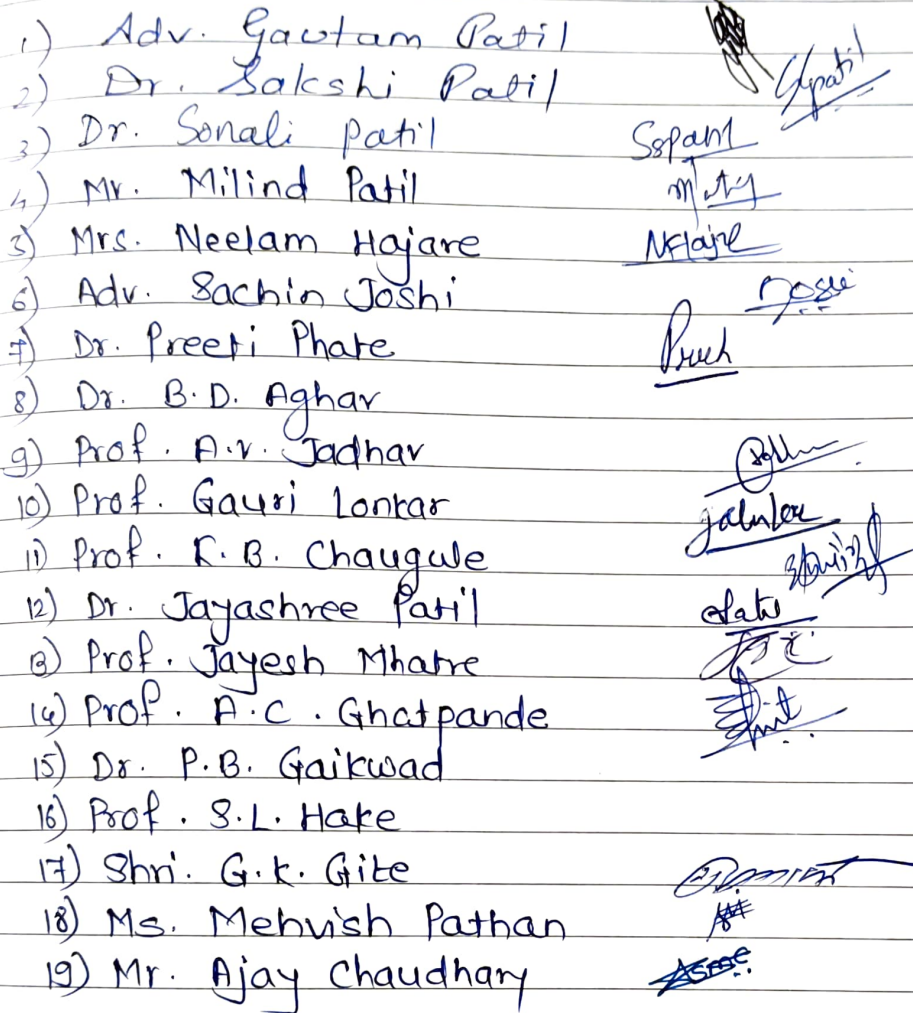 1) Adv. Gautam Patil
2) Dr. Sakshi Patil Sypatil
3) Dr. Sonali patil
4) Mr. Milind Patil
5) Mrs. Neelam Hajare NHajre
6) Adv. Sachin Joshi
7) Dr. Preeti Phate
8) Dr. B.D. Aghav
9) Prof. A.V. Jadhav
10) Prof. Gauri Lonkar
11) Prof. K.B. Chaugule
12) Dr. Jayashree Patil
13) Prof. Jayesh Mhatre
14) Prof. A.C. Ghatpande
15) Dr. P.B. Gaikwad
16) Prof. S.L. Hake
17) Shri. G.K. Gite
18) Ms. Mehvish Pathan
19) Mr. Ajay Chaudhary